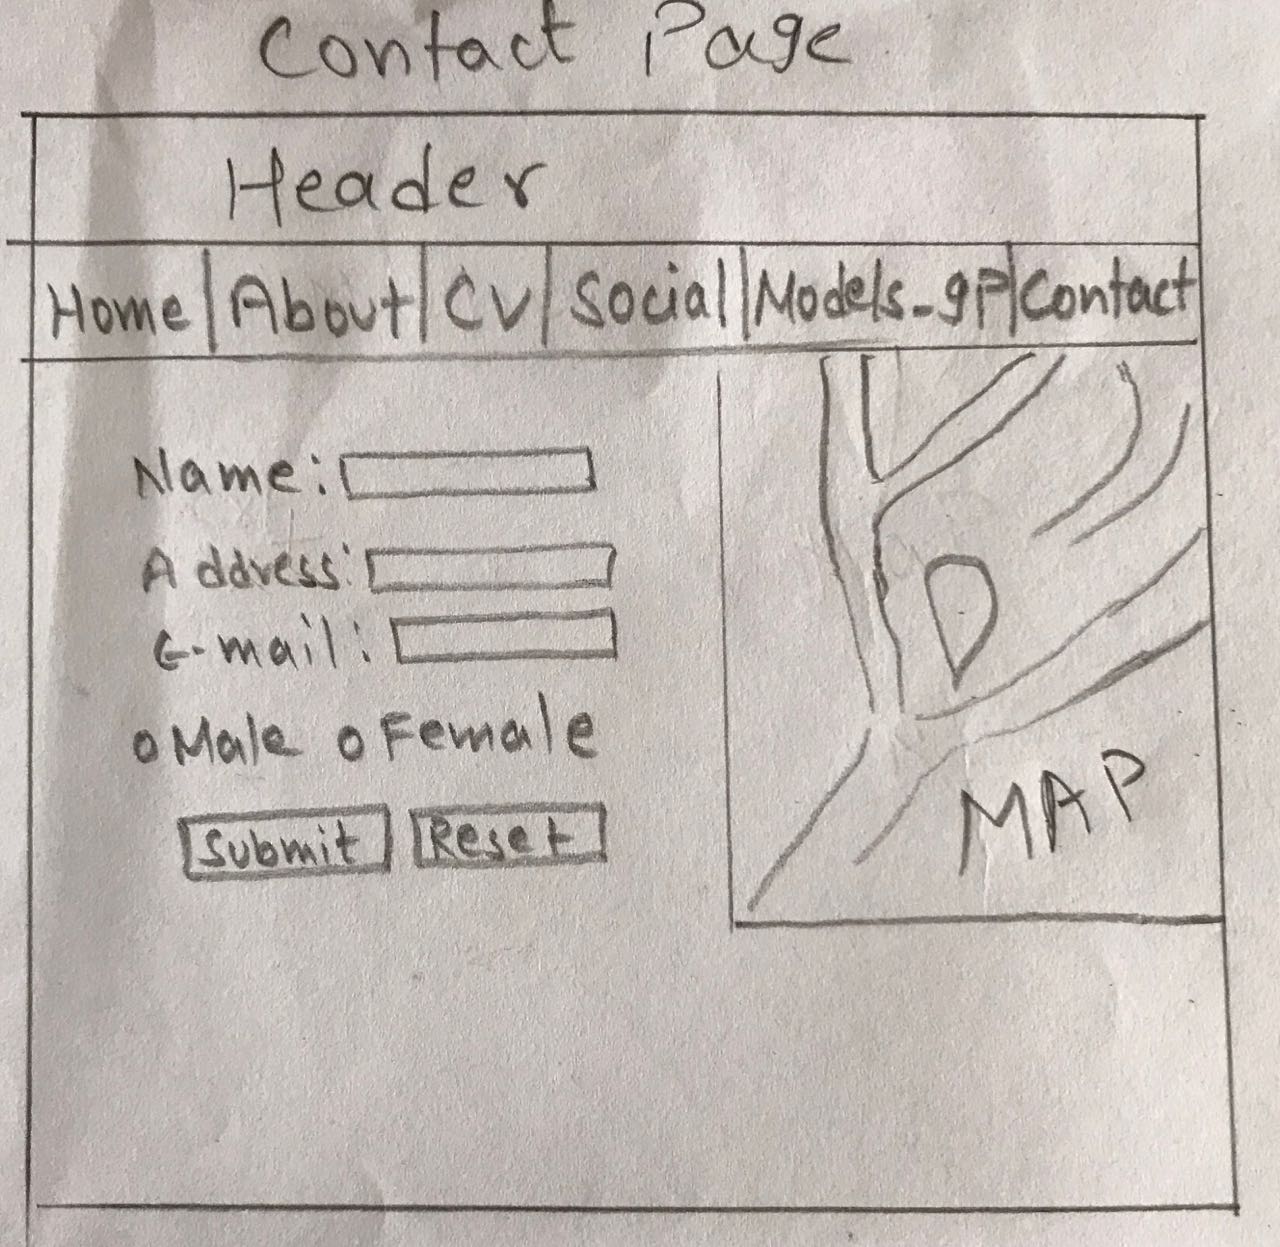 Contact Page
Header
Home About CV Social Models-gP Contact
Name:
Address:
E-mail:
Male Female
Submit Reset
MAP